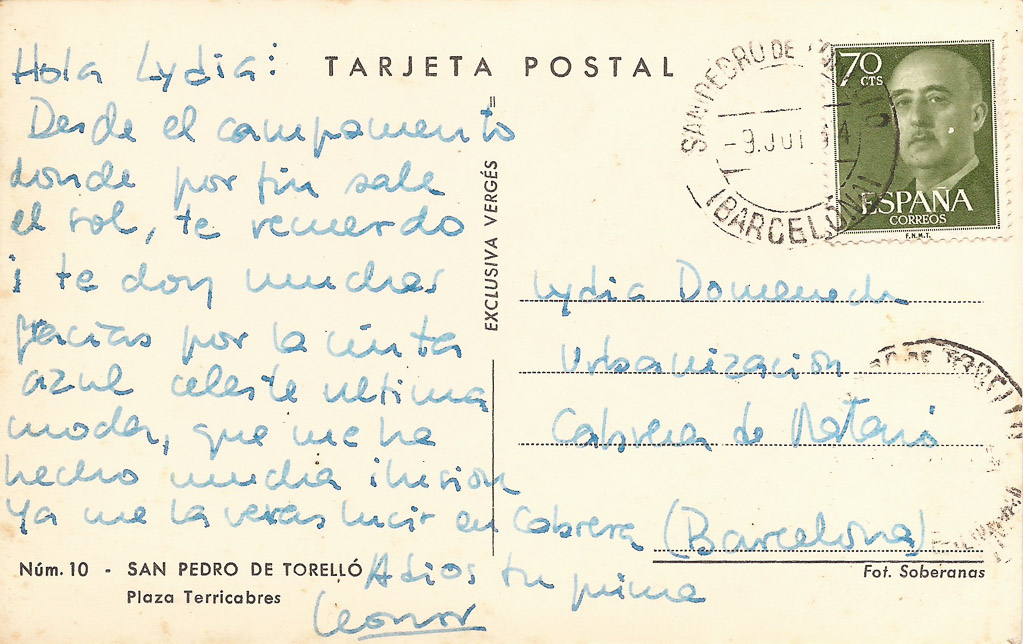 TARJETA POSTAL
Hola Lydia:
Desde el campamento
donde por fin sale
el sol, te recuerdo
i te doy muchas
gracias por la cinta
azul celeste ultima
moda, que me ha
hecho mucha ilusion
Ya me la veras lucir en Cabrera
Adios tu prima
Leonor
Núm. 10 - SAN PEDRO DE TORELLÓ
Plaza Terricabres
EXCLUSIVA VERGÉS
SAN PEDRO DE
-9.JUL
(BARCELONA)
70
CTS
ESPAÑA
CORREOS
F.N.M.T.
Lydia Domenech
Urbanización
Cabrera de Mataró
(Barcelona)
Fot. Soberanas